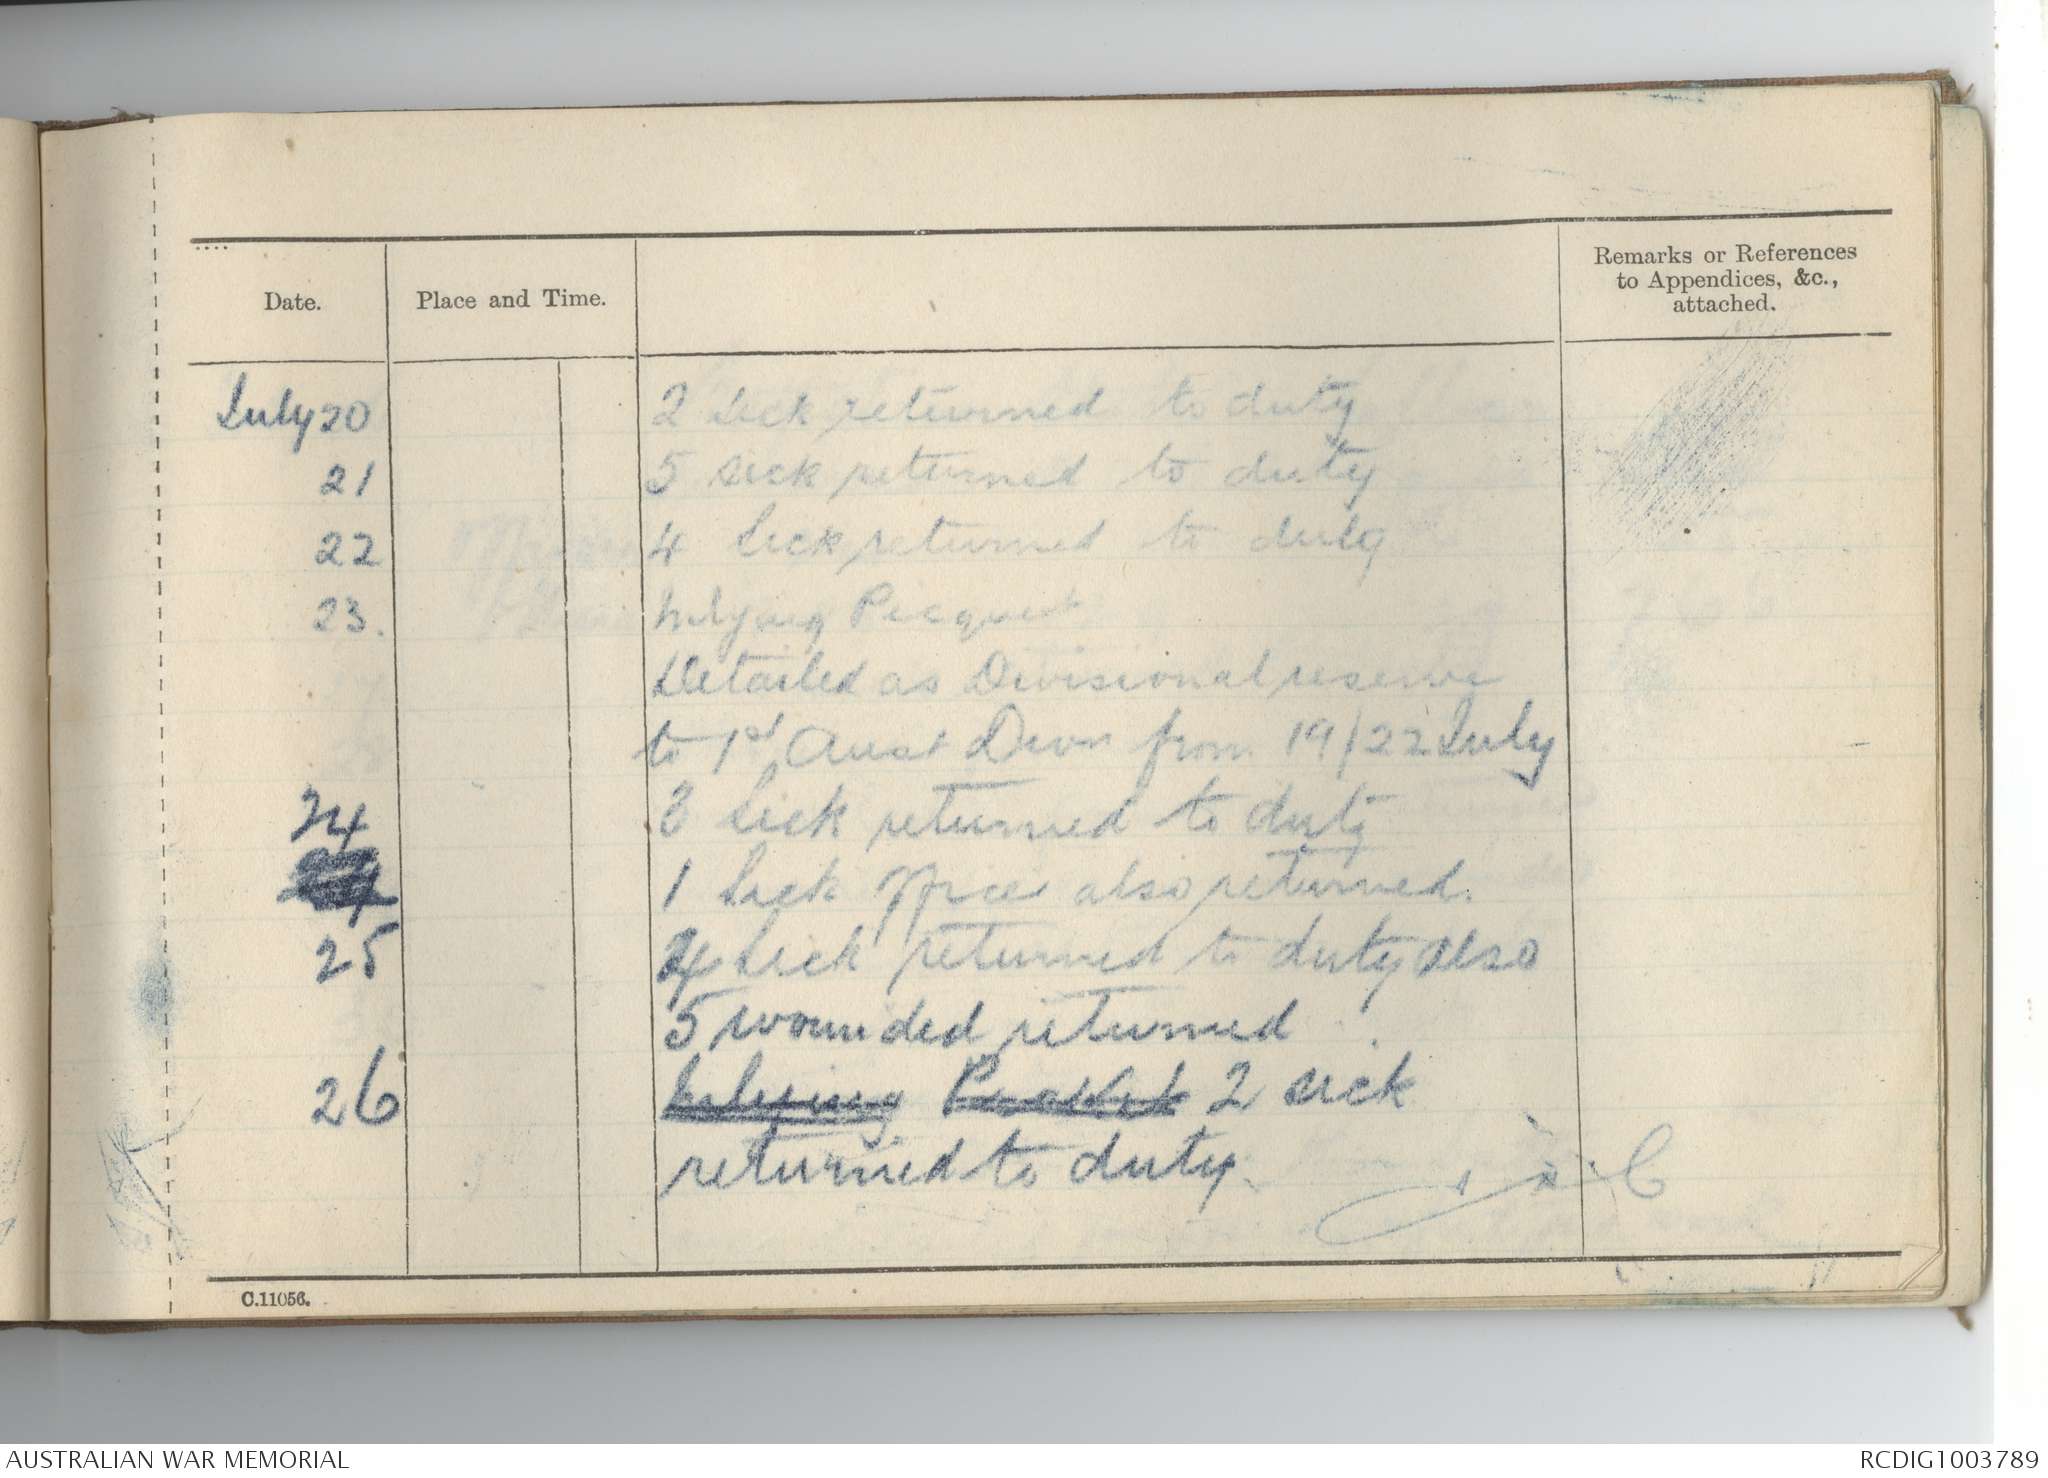 Date. Place and Time. Remarks or References
to Appendices, &c.,
attached.
July 20 2 Sick returned to duty
21 5 sick returned to duty
22 4 Sick returned to duty
23. Inlying Picquet
Detailed as Divisional reserve
to 1st Aust Divn from 19/22 July
24 3 Sick returned to duty
1 Sick Officer also returned.
25 4 Sick returned to duty also
5 wounded returned
26 Inlying 2 sick
returned to duty.
C.11056.
AUSTRALIAN WAR MEMORIAL RCDIG1003789